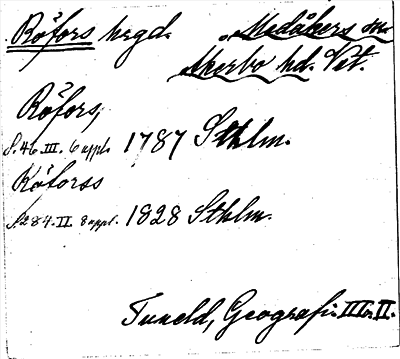 Röfors hrgd. Medåkers sn.
Åkerbo hd. Vst.
Röfors,
s. 46. III. 6 uppl. 1787 Sthlm.
Röforss
s. 284. II. 8 uppl. 1828 Sthlm.
Tuneld, Geografi. III o. II.